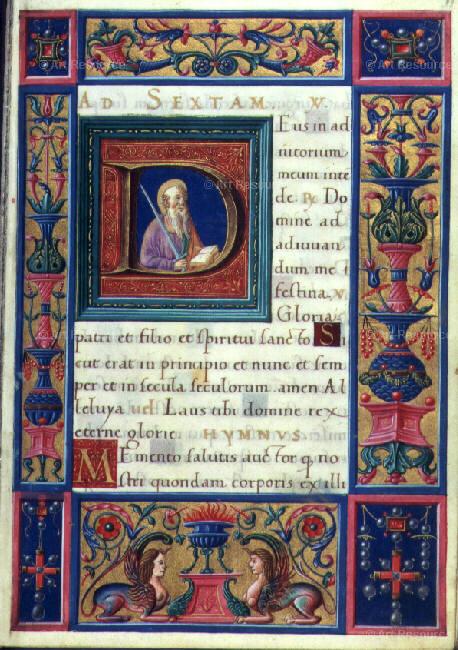 AD SEXTAM V.
Deus in ad
iutorum
meum inte
de. R. Do
mine ad
adiuuan
dum me
festina. V.
Gloria
patri et filio et spiritui sancto Si
cut erat in principio et nunc et sem
per et in secula seculorum. amen Al
leluya uel Laus tibi domine rex
eterne glorie HYMNUS
MEmento salutis auctor q. no
stri quondam corporis ex illi
© Art Resource
© Art Resource
© Art Resource
© Art Resource
© Art Resource
© Art Resource